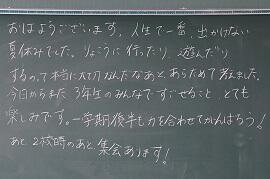 おはようございます。人生で一番、出かけない
夏休みでした。りょこうに行ったり、遊んだり
するのって本当に大切なんだなあと、あらためて考えました。
今日からまた3年生のみんなですごせること、とても
楽しみです。一学期後半も力を合わせてがんばろう!
あと、2校時のあと、集会あります!